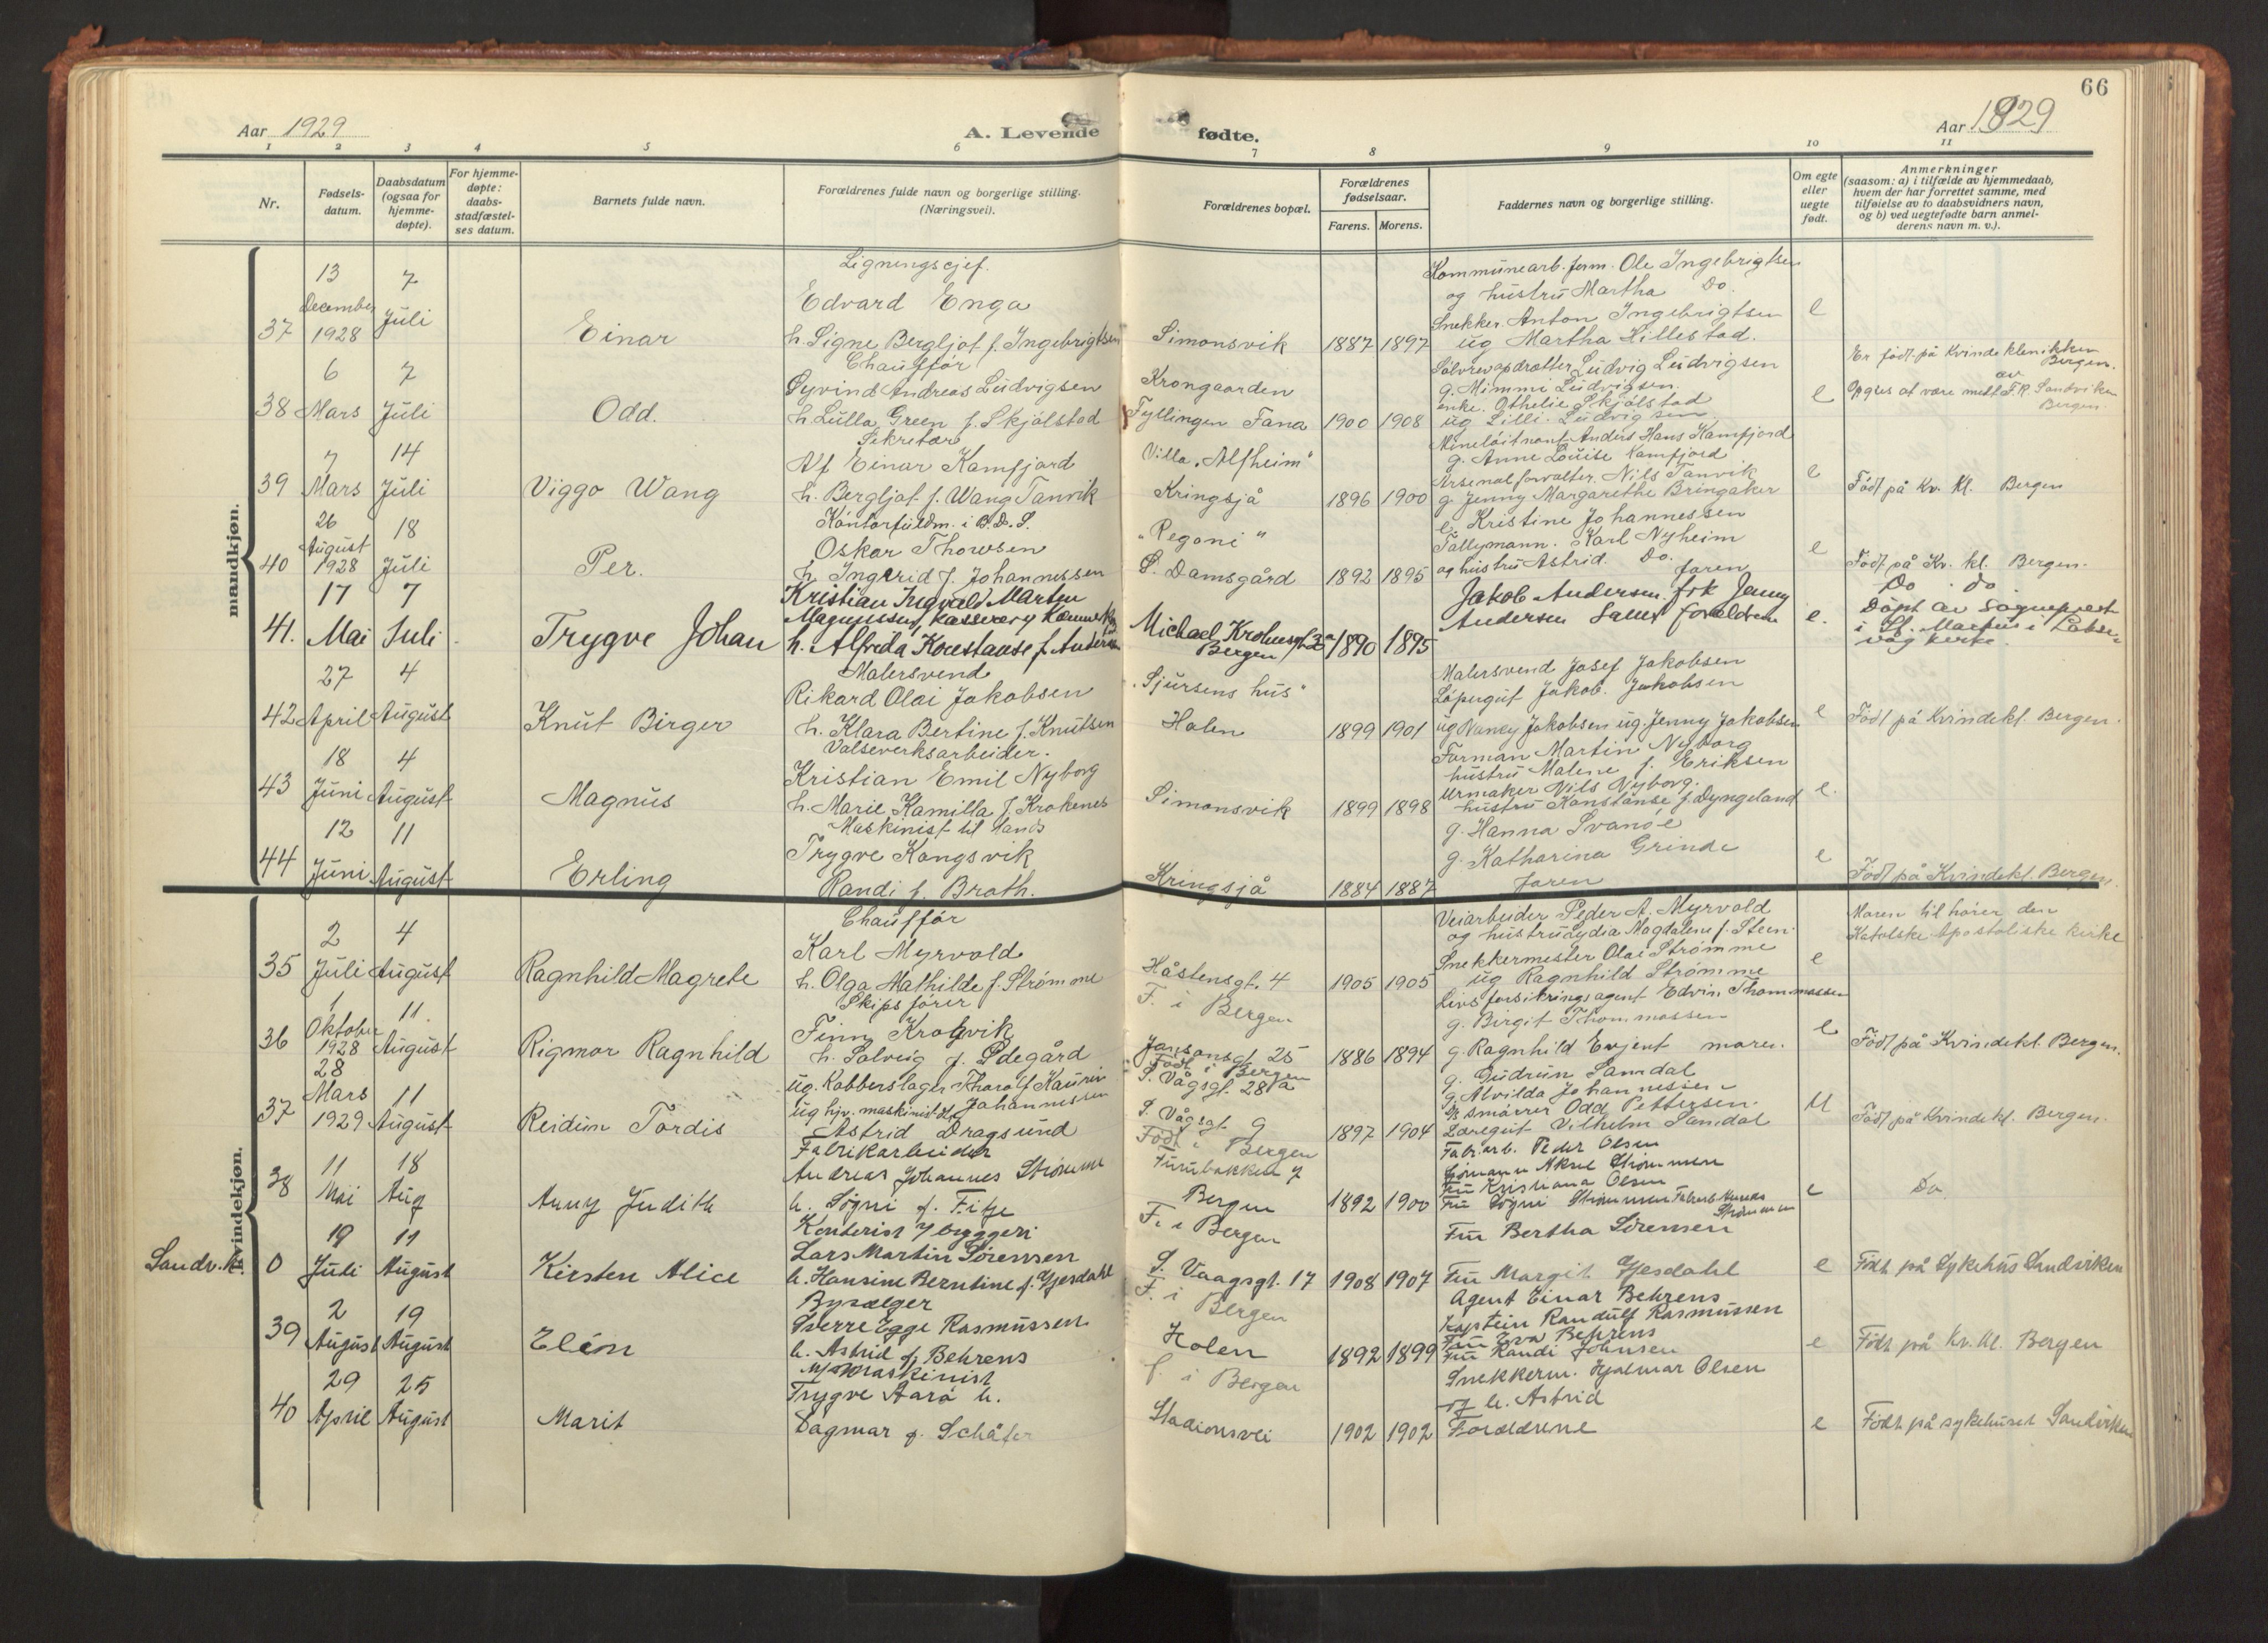 66
Aar 1929
A. Levende
fødte.
Aar 1929
1 2 3 4 5 6 7 8 9 10 11
Nr.
Fødsels-
datum.
Daabsdatum
(ogsaa for
hjemme-
døpte).
For hjemme-
døpte:
daabs-
stadfæstel-
ses datum.
Barnets fulde navn.
Forældrenes fulde navn og borgerlige stilling.
(Næringsvei).
Forældrenes bopæl.
Forældrenes
fødselsaar.
Farens. Morens.
Faddernes navn og borgerlige stilling.
Om egte
eller
uegte
født.
Anmerkninger
(saasom: a) i tilfælde av hjemmedaab,
hvem der har forrettet samme, med
tilføielse av to daabsvidners navn,
og b) ved uegtefødte barn anmel-
derens navn m. v.).
mandkjøn.
37
13
December
1928
7
Juli
Einar
Ligningscjef.
Edvard Enga
h. Signe Bergljot f. Ingebrigtsen
Simonsvik
1887 1897
Kommunearb. form. Ole Ingebrigtsen
og hustru Martha Do.
Snekker. Anton Ingebrigtsen
ug Martha Hillestad.
e
38
6
Mars
7
Juli
Odd.
Chauffór
Øyvind Andreas Ludvigsen
h. Lulla Green f. Skjólstad
Krongaarden
Fyllingen Fana
1900 1908
Sólvrevopdrætter Ludvig Ludvigsen
g. Mimmi Ludvigsen.
enke. Othelie Skjólstad
ug Lilli. Ludvigsen
e
Er fód på Kvindeklenikken
Bergen.
Opgies at være meldt av F.R. Sandviken
Bergen.
39
7
Mars
14
Juli
Viggo Wang
Sekretær
Alf Einar Kamfjord
h. Bergljot f. Wang Tanvik
Villa „Alfheim"
Kringsjå
1896 1900
Mineloitnant Anders Hans Kamfjord
g. Anne Louise Kamfjord
Arsenalforvalter. Nils Tanvik
g. Jenny Margarethe Bringaker
e
Fódt på Kv. Kl. Bergen
40
26
August
1928
18
Juli
Per.
Kontorfuldm. i B.D.S.
Oskar Thowsen
h. Ingerid f. Johannessen
„Regoni"
S. Damsgård
1892 1895
e. Kristine Johannessen
Tallymann. Karl Nyheim
og hustru Astrid. Do. faren
e
Fódt på Kv. kl. Bergen.
Do do
41.
17
Mai
7
Juli
Trygve Johan
Kristian Ingvald Marten
Magnussen, kasserer v
h. Alfreda Konstanse f. Andersen
Michael Krohnsgt.
Bergen
1890 1895
Jakob Andersen. frk Jenny
Andersen samt foreldrene
e.
Dópt av sogneprest
i St. Markus i Lakse-
våg kirke.
42
27
April
4
August
Knut Birger
Malersvend
Rikard Olai Jakobsen
h. Klara Bertine f. Knutsen
„Sjursens hus"
Holen
1899 1901
Malersvend Josef Jakobsen
Lópegut Jakob. Jakobsen
ug Nancy Jakobsen ug. Jenny Jakobsen
e
Fódt på Kvindekl. Bergen.
43
18
Juni
4
August
Magnus
Valseverksarbeider.
Kristian Emil Nyborg
h. Marie Kamilla f. Krokenes
Simonsvik
1899 1898
Formann Martin Nyborg
hustru Malene f. Eriksen
Urmaker Nils Nyborg.
hustru Konstanse f. Dyngeland
e.
44
12
Juni
11
August
Erling
Maskinist til lands
Trygve Kongsvik
Randi f. Brath.
Kringsjå
1884 1887
g. Hanna Svanóe
g. Katharina Grinde
faren
e
Fódt på Kvindekl. Bergen.
kvindekjøn.
35
2
Juli
4
August
Ragnhild Magrete
Chauffór
Karl Myrvold
h. Olga Mathilde f. Strømme
Håstensgt. 4
F. i Bergen
1905 1905
Veiarbeider Peder A. Myrvold
og hustru Lydia Magdalene f. Steen.
Snekkermester Olai Strømme
ug Ragnhild Strømme
e
Moren til hører den
Katolske Apostoliske kirke
36
1
Oktober
1928
11.
August
Rigmor Ragnhild
Skipsfórer
Finn Krogvik
h. Solveig f. Ødegård
Jansonsgt. 25
Født i Bergen
1886 1894
Livsforsikringsagent Edvin Thommassen
g. Birgit Thommassen
g. Ragnhild Evjent moren.
e
Fódt på Kvindekl. Bergen.
37
28
Mars
1929
11
August
Reidun Tordis
ug. Kobberslager Thoralf Kaurin
ug hjv. maskinist Johannessen
Astrid Dragsund
S. Vågsgt. 28 a
S. Vågsgt 9
Født i Bergen
1897 1904
g. Gudrun Samdal
g. Alvilda Johannessen
smórrer Odd Pettersen.
Læregut Vilhelm Samdal
U
Fódt på Kvindekl. Bergen.
38
11
Mai
18
Aug
Anny Judith
Fabrikarbeider
Andreas Johannes Strømme
h. Søgni f. Fitje
Furubakken 7
Bergen
F. i Bergen
1892 1900
Fabr. arb. Peder Olsen
Sjómann Aksel Strømmen
Fru Kristiana Olsen
Fru Sógni Strømmen
e
Do
Sandv. k.
0
19
Juli
11
August
Kirsten Alice
Kontorist v bryggeri
Lars Martin Sørensen
h. Hansine Berntine f. Gjesdahl
S. Vaagsgt. 17
F. i Bergen
1908 1907
Fru Bertha Sørensen
Fru Margit Gjesdahl
e
Fódt på Sykehus Sandviken
39
2
August
19
August
Elén
Bysælger
Sverre Egge Rasmussen
h. Astrid f. Behrens
Holen
f. i Bergen
1892 1899
Agent Einar Behrens
Kaptein Randulf Rasmussen
Fru Eva Behrens
Fru Randi Johnsen
e
Fódt på Kv. kl. Bergen
40
29
April
25
August
Marit
Maskinist
Trygve Aaró h.
Dagmar f. Schåfer
Stadionsvei
1902 1902
Snekkerm. Hjalmar Olsen
og h. Astrid
Forældrene
e
Fódt på sykehuset Sandviken